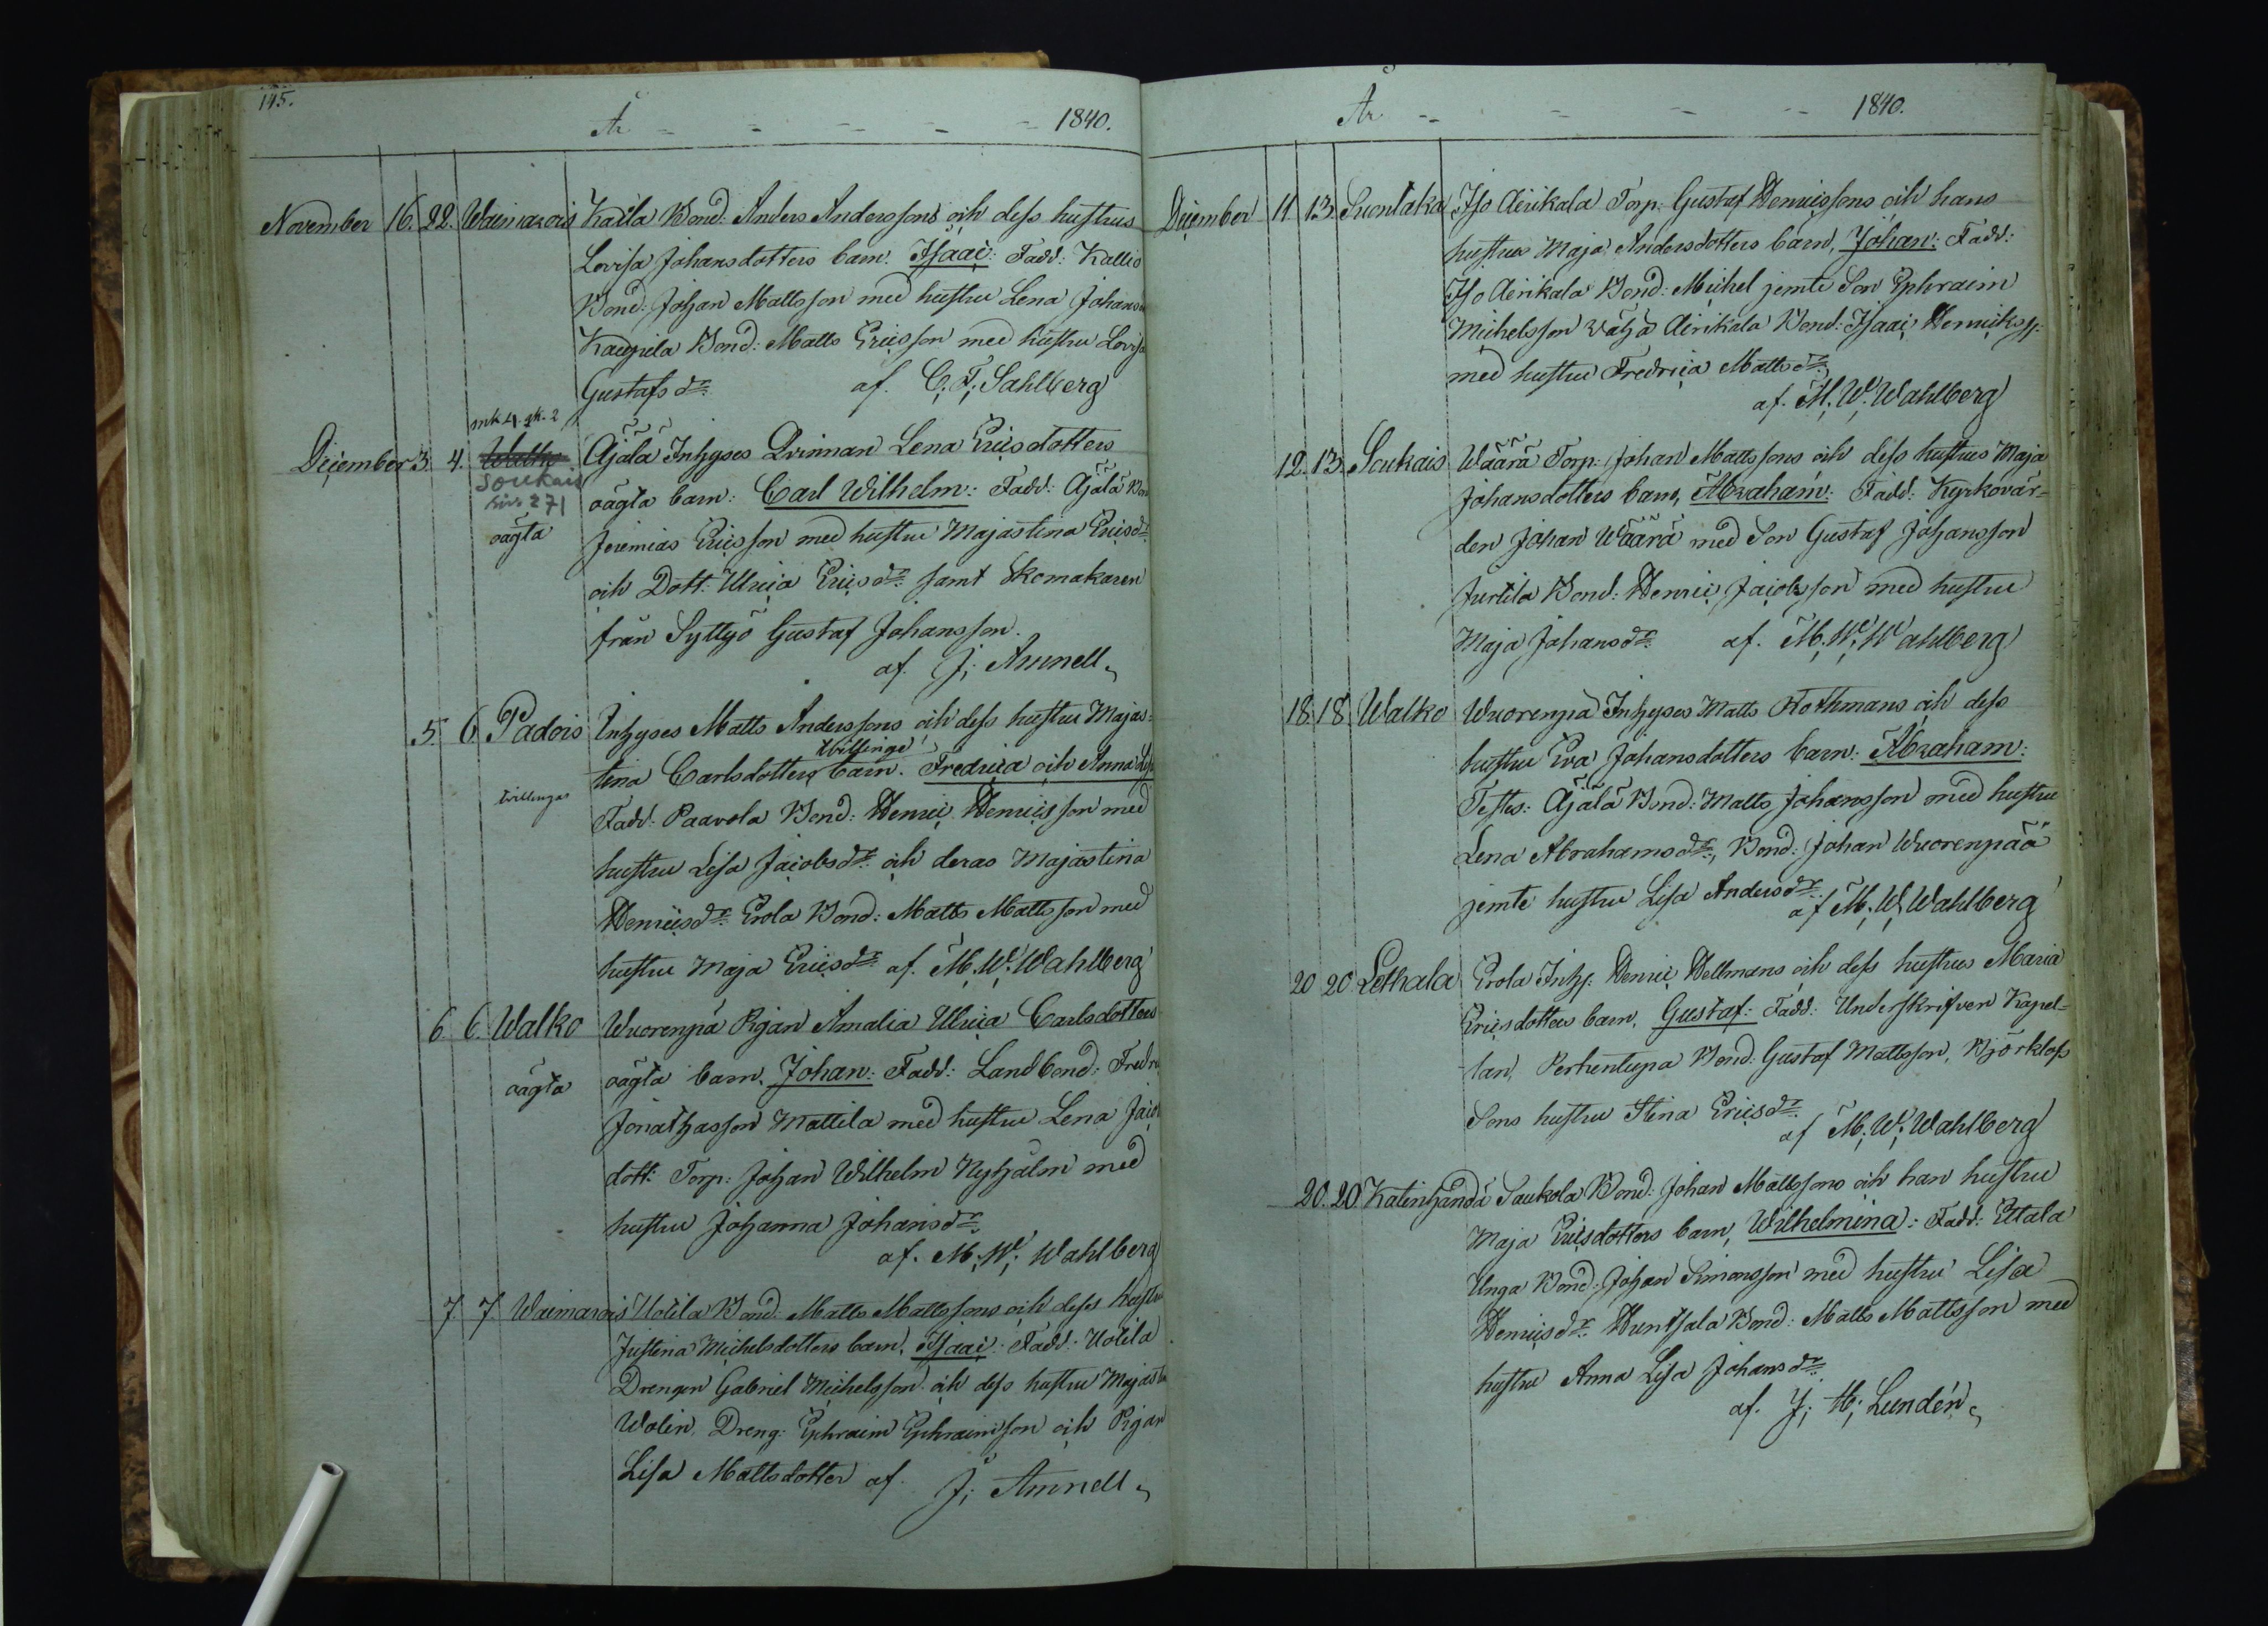 145.
År - - - - - 1840.
November 16. 22. Waimarois Kaila Bond: Anders Anderssons och dess hustrus
Lovisa Johansdotters barn. Isaac: Fadd: Kallio
Bond: Johan Mattsson med hustru Lena Johans
Kaupila Bond: Matts Ericsson med hustru Lovisa
Gustafs dr. af. C. F. Sahlberg
mk 4. gk. 2
December 3. 4. Walko Ajälä Inhyses Qvinnan Lena Ericsdotters
Soukais
siv. 271 oägta barn: Carl Wilhelm: Fadd: Ajälä Bond
oägta Jeremias Ericsson med hustru Majastina Ericsdr.
och Dott: Ulrica Ericsdr. samt Skomakaren
från Syttyö Gustaf Johansson.
af. J; Amnell
5. 6. Padois Inhyses Matts Anderssons och dess hustru Majas-
tvillinge
tina Carlsdotters barn. Fredrica och Anna Lisa
tvillingar Fadd: Paavola Bond: Henric Henricsson med
hustru Lisa Jacobsdr. och deras Majastina
Henricsdr. Erola Bond: Matts Mattsson med
hustru Maja Ericsdr. af. M; W; Wahlberg
6. 6. Walko Wuorenpä Pigan Amalia Ulrica Carlsdotters
oägta oägta barn. Johan: Fadd: Landbond: Fredr
Jonathasson Mattila med hustru Lena Jaco
dott: Torp: Johan Wilhelm Nyhjälm med
hustru Johanna Johansdr.
af. M; W; Wahlberg
7. 7. Waimarois Uotila Bond: Matts Mattssons och dess hustru
Justina Michelsdotters barn. Isaac: Fadd: Uotila
Drengen Gabriel Michelsson och dess hustru Majastin
Wolin, Dreng: Ephraim Ephraimsson och Pigan
Lisa Mattsdotter af. J; Amnell
År - - - - 1840.
December 11. 13. Suontaka Iso Äirikala Torp: Gustaf Henricssons och hans
hustrus Maja Andersdotters barn, Johan: Fadd:
Iso Äirikala Bond: Michel jemte Son Ephraim
Michelsson Wähä Äirikala Bond: Isaac Henrikss:
med hustru Fredrica Mattsdr.
af. M. W. Wahlberg
12. 13. Soukais Wäärä Torp: Johan Mattssons och dess hustrus Maja
Johansdotters barn, Abraham: Fadd: Kyrkovär-
den Johan Wäärä med Son Gustaf Johansson
Jurtila Bond: Henric Jacobsson med hustru
Maja Johansdr. af. M. W; Wahlberg
18. 18. Walko Wuorenpä Inhyses Matts Rothmans och dess
hustru Eva Johansdotters barn: Abraham:
Testes: Ajälä Bond: Matts Johansson med hustru
Lena Abrahamsdr., Bond: Johan Wuorenpää
jemte hustru Lisa Andersdr.
af M. W. Wahlberg
20 20 Lethala Erola Inhs: Henric Hellmans och dess hustrus Maria
Ericsdotters barn, Gustaf: Fadd: Underskrifven Kapel-
lan, Perhentupa Bond: Gustaf Mattsson, Björklöfs
Sons hustru Stina Ericsdr.
af M. W; Wahlberg
20. 20 Katinhändä Saukola Bond: Johan Mattssons och han hustru
Maja Ericsdotters barn, Wilhelmina: Fadd: Ettala
Unga Bond: Johan Simonsson med hustru Lisa
Henricsdr. Huntsala Bond: Matts Mattsson med
hustru Anna Lisa Johansdr.
af. J; H; Lundén